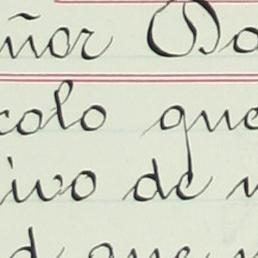 ñor Do
colo que
ivo de
d que